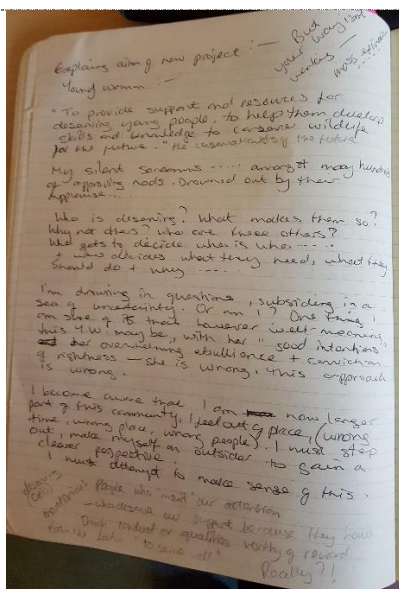 Explaining aim of new project :—
But your way isn't working —
mass extinction
Young woman :—
"To provide support and resources for
deserving young people, to help them develop
skills and knowledge to conserve wildlife
for the future." "the conservationists of the future
My silent screams ..... amongst many hundreds
of approving nods. Drowned out by their
applause...
Who is deserving? What makes them so?
Why not others? Who are these others?
Who gets to decide who is who .....
+ who decides what they need, what they
should do + why .....
I'm drowning in questions, subsiding in a
sea of uncertainty. Or am I? One thing I
am sure of is that however well-meaning
this Y.W. may be, with her "good intentions"
her overwhelming ebullience + conviction
of rightness — she is wrong. This approach
is wrong.
I become aware that I am now longer
part of this community, I feel out of place, (wrong
time, wrong place, wrong people). I must step
out, make myself an outsider to gain a
clearer perspective.
I must attempt to make sense of this.
People who merit our attention
— who deserve our support because they have
conduct or qualities worthy of reward
from the Latin "to serve
Really?!